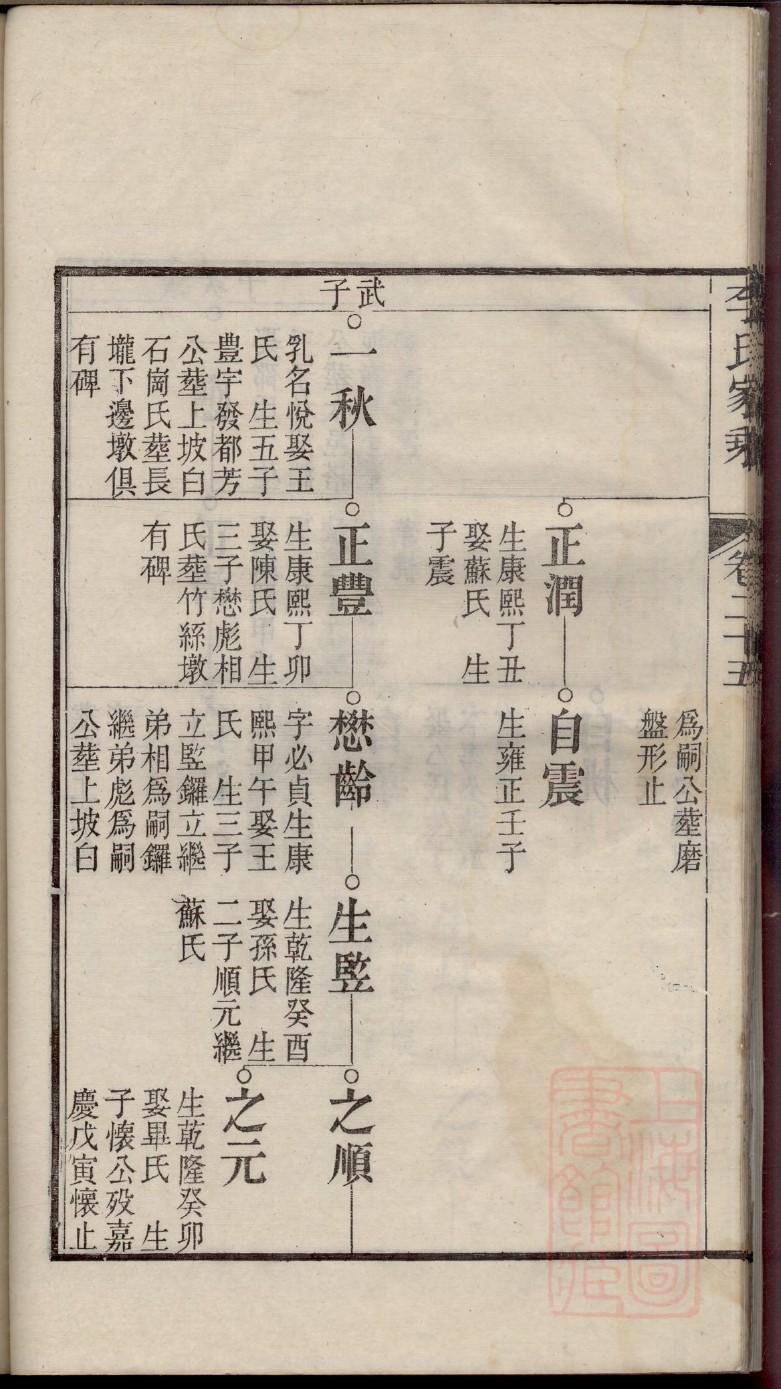 李氏家乘
卷二十五
爲嗣公塟磨
盤形止
正潤
生康熙丁丑
娶蘇氏 生
子震
自震
生雍正壬子
武子
一秋
乳名悅娶王
氏 生五子
豊宇發都芳
公塟上坡白
石崗氏塟長
壠下邊墩俱
有碑
正豐
生康熙丁卯
娶陳氏 生
三子懋彪相
氏塟竹絲墩
有碑
懋齡
字必貞生康
熙甲午娶王
氏 生三子
立監鑼立繼
弟相爲嗣鑼
繼弟彪爲嗣
公塟上坡白
生監
生乾隆癸酉
娶孫氏 生
二子順元繼
蘇氏
之順
之元
生乾隆癸卯
娶畢氏 生
子懐公殁嘉
慶戊寅懐止
上海圖
書館藏